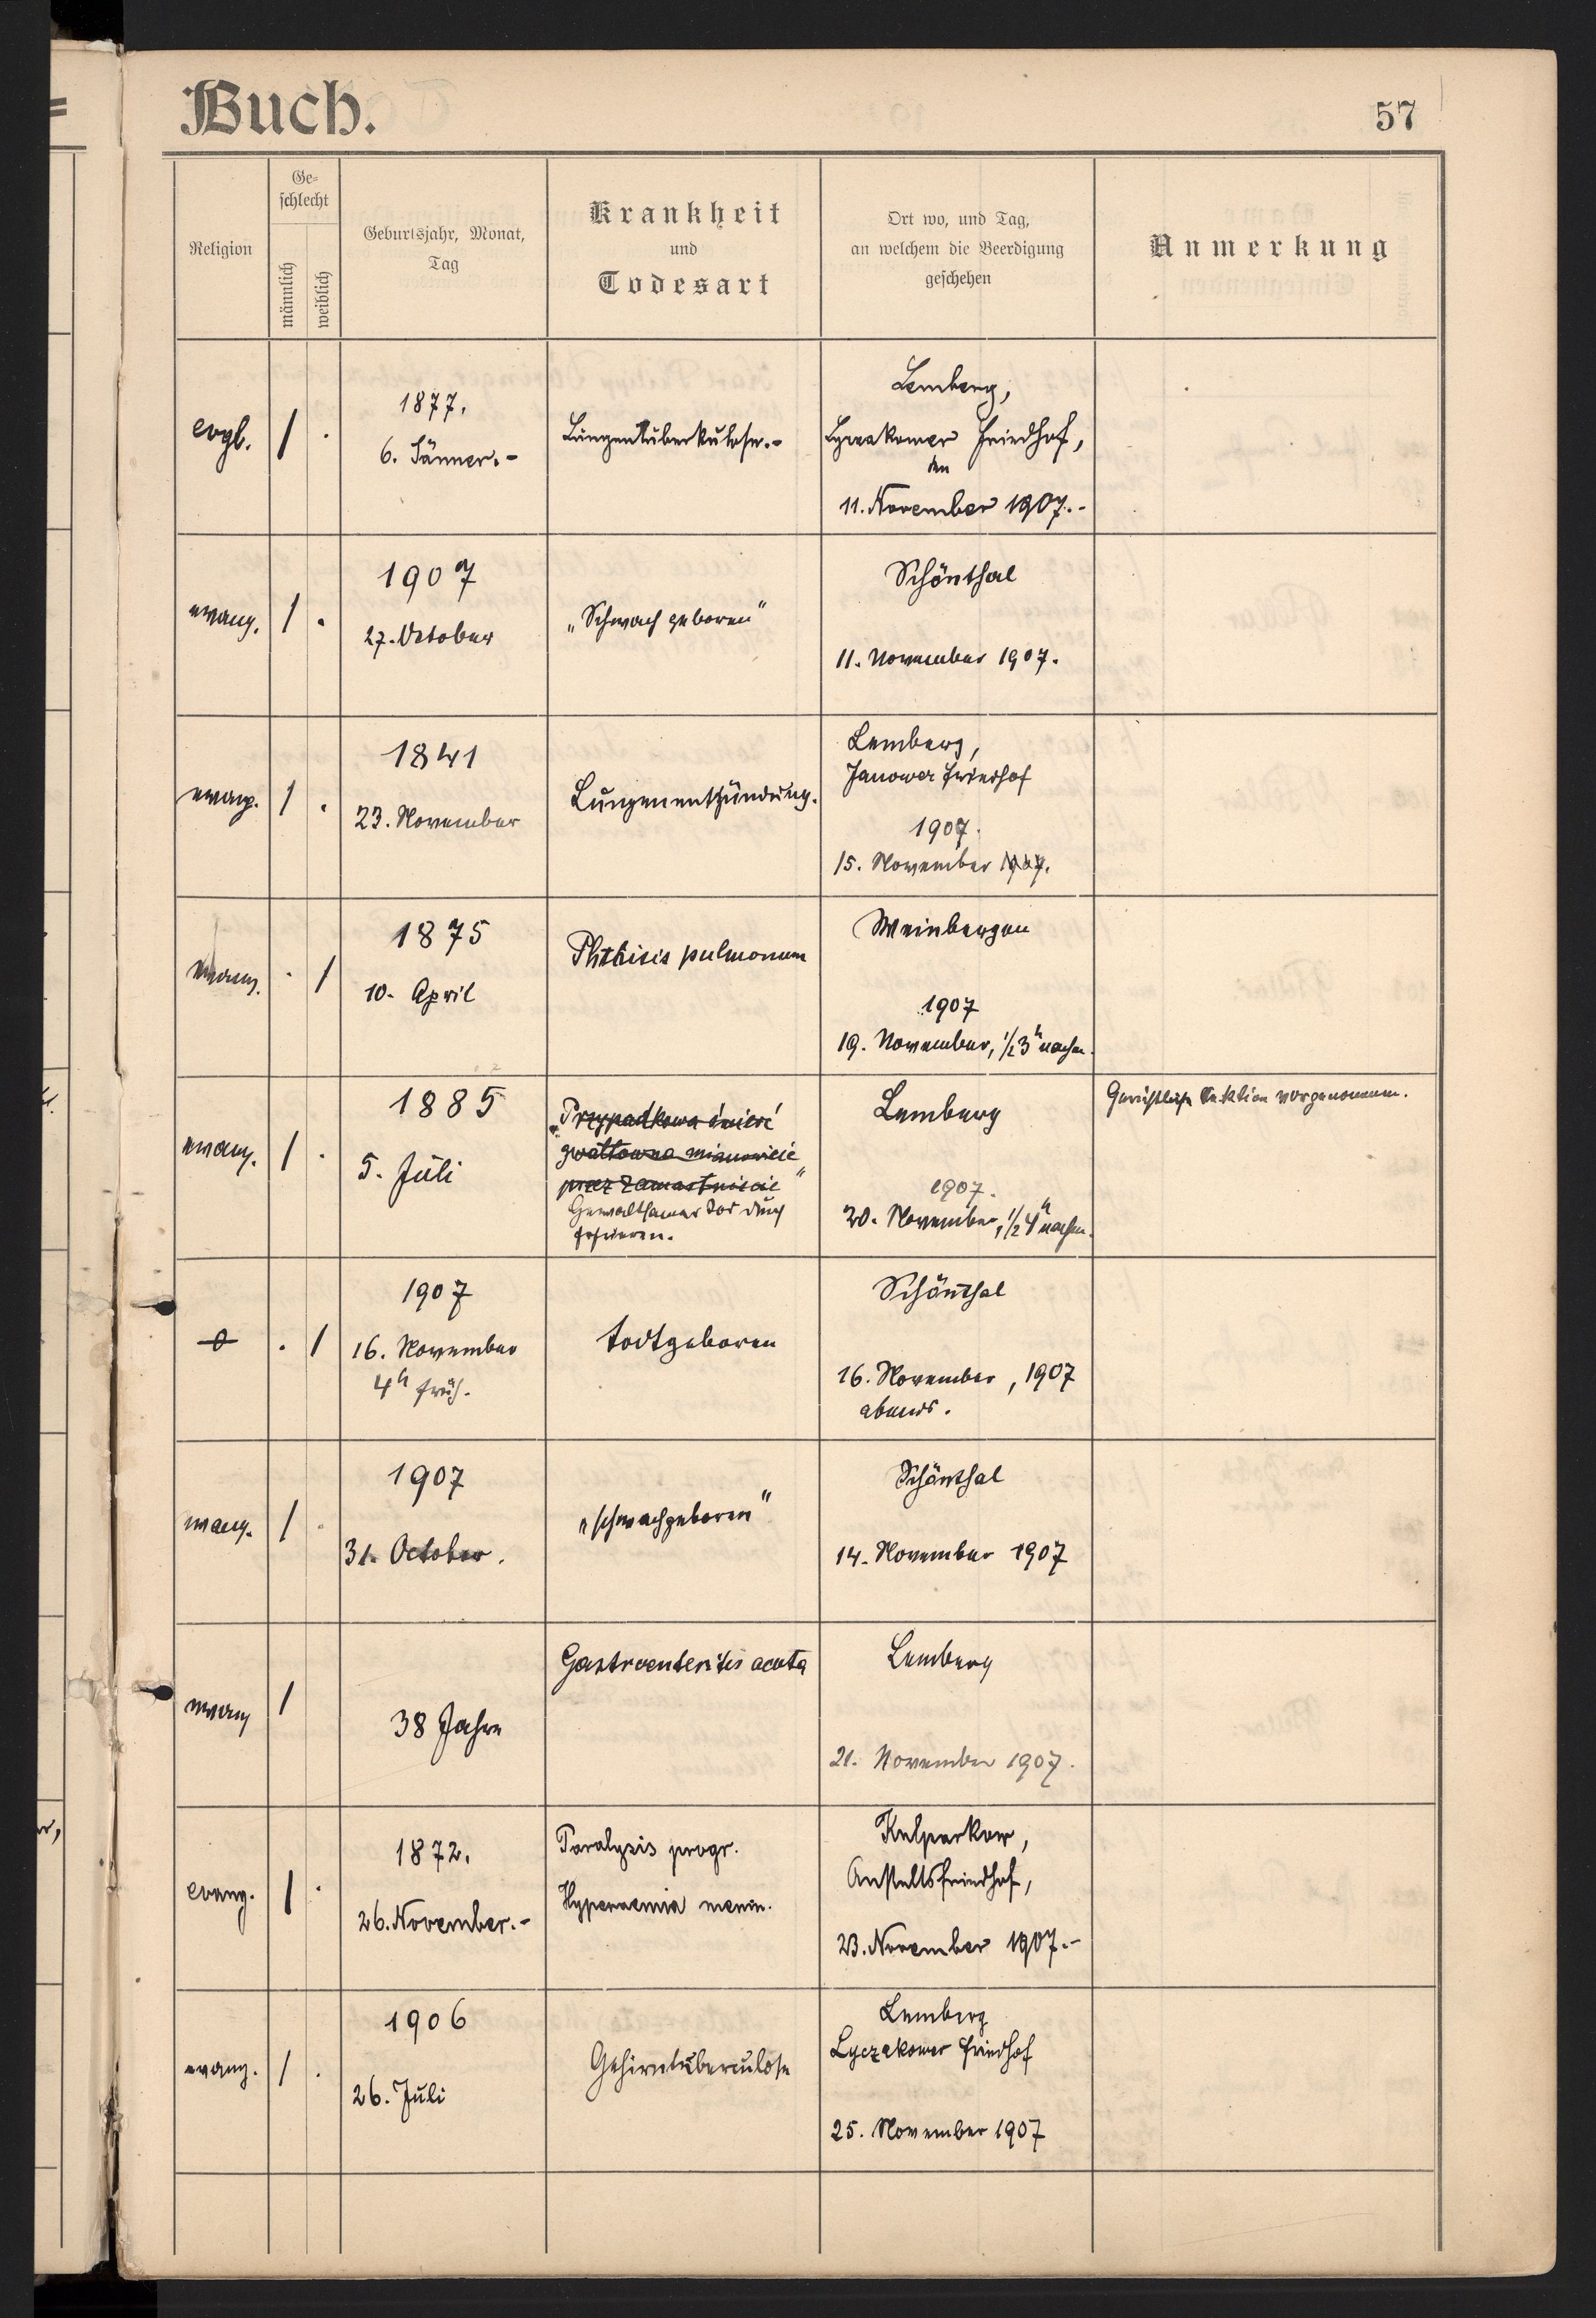 Buch.
57
Religion
Ge=
schlecht
männlich
weiblich
Geburtsjahr, Monat,
Tag
Krankheit
und
Todesart
Ort wo, und Tag,
an welchem die Beerdigung
geschehen
Anmerkung
evgl.
1
1877.
6. Jänner.-
Lungentuberkulose.-
Lemberg,
Lyczakower Friedhof,
den
11. November 1907.-
evang.
1
1907
27. October
„Schwach geboren"
Schönthal
11. November 1907.
evang.
1
1841
23. November
Lungenentzündung.
Lemberg,
Janower Friedhof
1907.
15. November 1907.
evang.
1
1875
10. April
Phthisis pulmonum
Weinbergen
1907
19. November, ½3h nachm.
evang.
1
1885
5. Juli
„Przypadkowa śmierć
gwałtowna mianowicie
przez zamarznięcie"
Gewaltsamer Tod durch
erfrieren.
Lemberg
1907.
20. November, ½4h nachm.
Gerichtliche Sektion vorgenommen.
0
1
1907
16. November
4h früh.
todtgeboren
Schönthal
16. November, 1907
abends.
evang.
1
1907
31. October.
„schwachgeboren"
Schönthal
14. November 1907
evang
1
38 Jahre
Gastroenteritis acuta
Lemberg
21. November 1907.
evang.
1
1872.
26. November.-
Paralysis progr.
Hyperaemia menin.
Kulparkow,
Anstaltsfriedhof,
23. November 1907.-
evang.
1
1906
26. Juli
Gehirntuberculose
Lemberg
Lyczakower Friedhof
25. November 1907